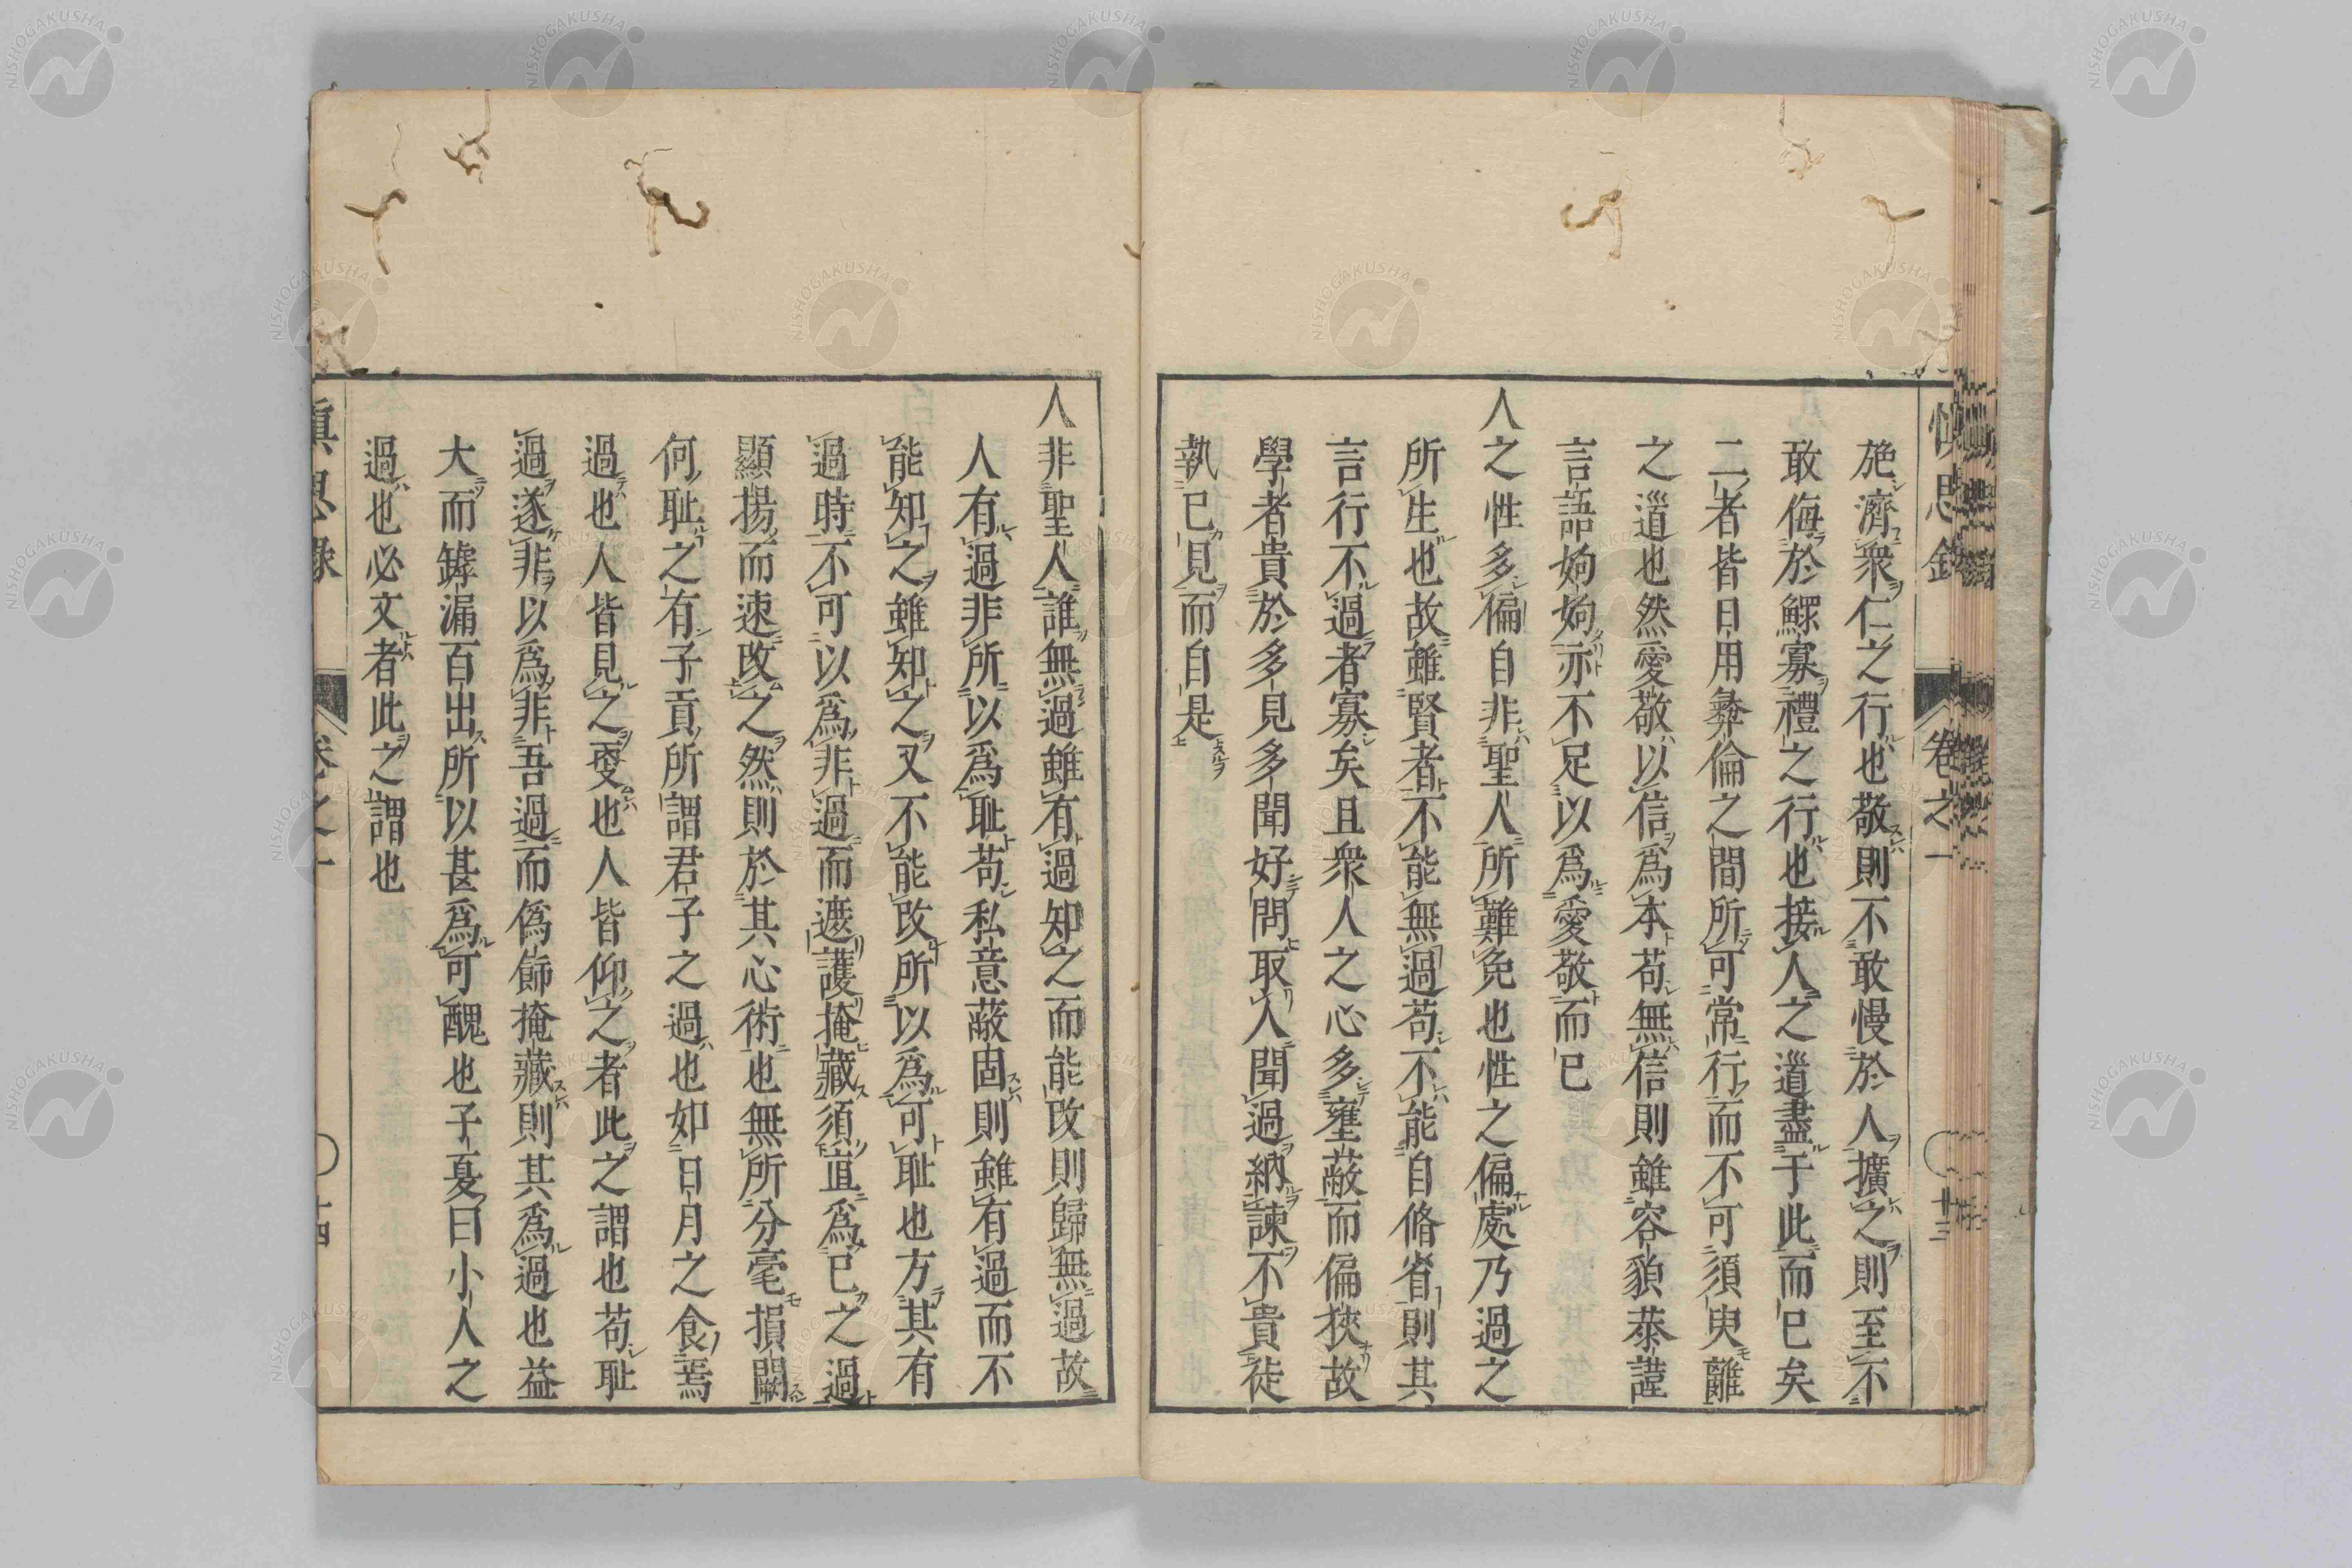 慎思錄 卷之一 〇 廿三
施濟衆仁之行也敬則不敢慢於人擴之則至不
敢侮於鰥寡禮之行也接人之道盡于此而已矣
二者皆日用彝倫之間所可常行而不可須臾離
之道也然愛敬以信爲本苟無信則雖容貌恭謹
言語姁姁亦不足以爲愛敬而已
人之性多偏自非聖人所難免也性之偏處乃過之
所生也故雖賢者不能無過苟不能自脩省則其
言行不過者寡矣且衆人之心多壅蔽而偏狹故
學者貴於多見多聞好問取人聞過納諫不貴徒
執已見而自是
人非聖人誰無過雖有過知之而能改則歸無過故
人有過非所以爲耻苟私意蔽固則雖有過而不
能知之雖知之又不能改所以爲可耻也方其有
過時不可以爲非過而遮護掩藏須宜爲已之過
顯揚而速改之然則於其心術也無所分毫損闕
何耻之有子貢所謂君子之過也如日月之食焉
過也人皆見之更也人皆仰之者此之謂也苟耻
過遂非以爲非吾過而僞飾掩藏則其爲過也益
大而罅漏百出所以甚爲可醜也子夏曰小人之
過也必文者此之謂也
愼思錄 卷之一 〇